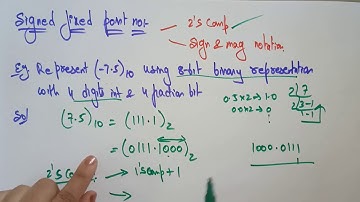 Signed fixed point no:
2's Comp
sign & mag notation
Eg Represent (-7.5)10 using 8-bit binary representation
with 4 digits int & 4 fraction bit
Sol
(7.5)10 = (111.1)2
= (0111.1000)2
0.5x2 → 1.0
0.0x2 → 0
2 7
2 3-1
1-1
1000.0111
2's Comp → 1's comp + 1
→